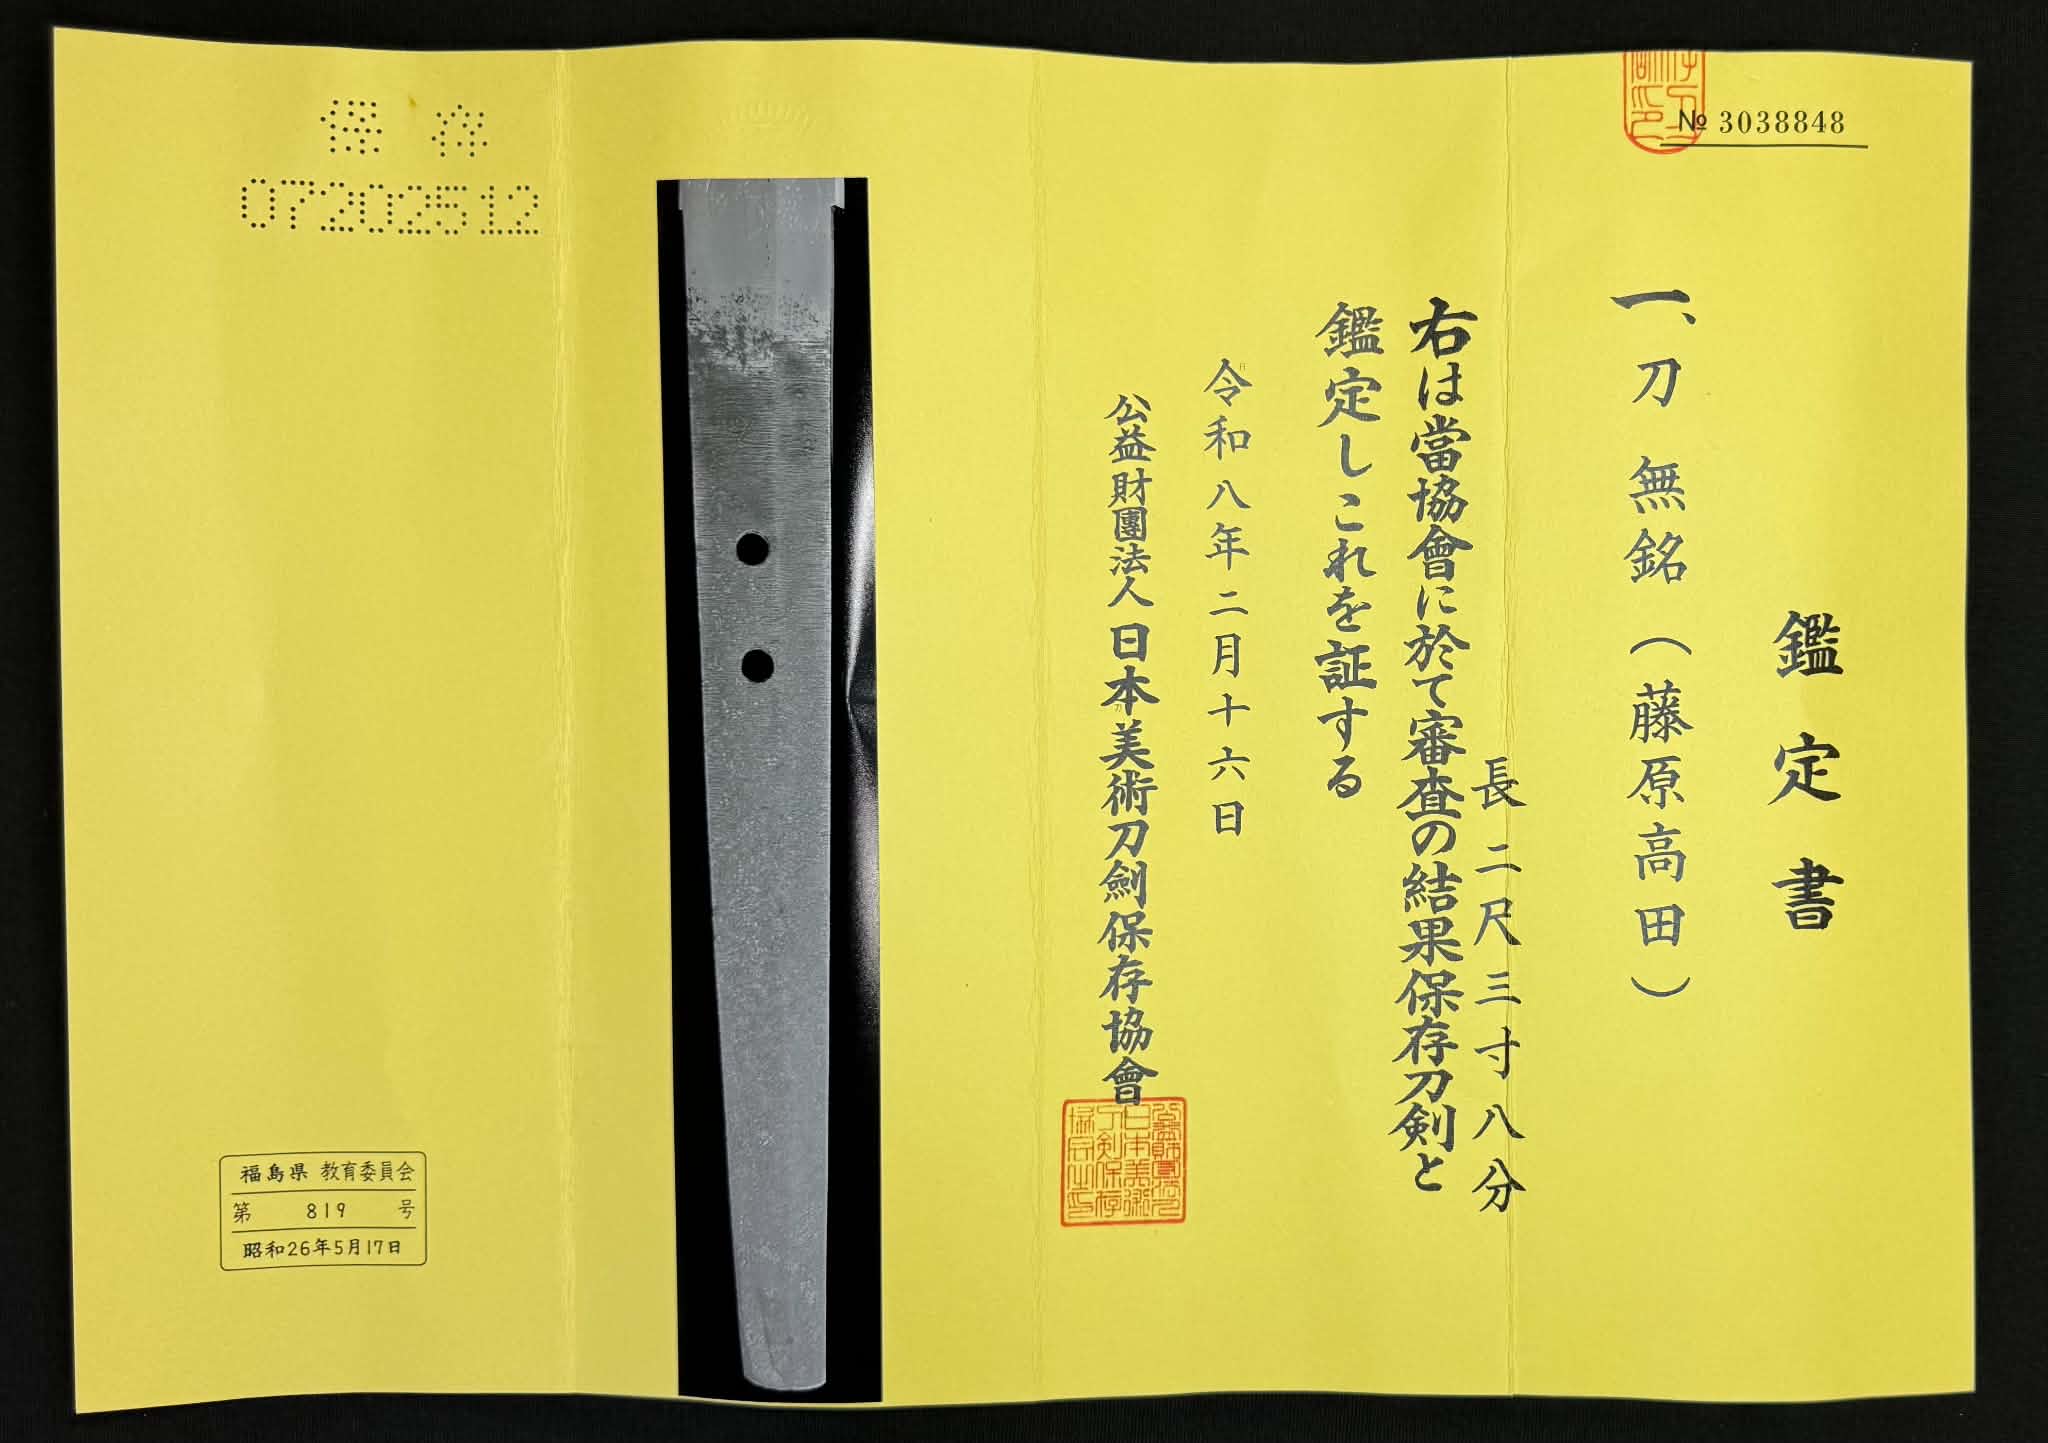 № 3038848
鑑定書
一、刀 無銘（藤原高田）
長二尺三寸八分
右は當協會に於て審査の結果保存刀剣と
鑑定しこれを証する
令和八年二月十六日
公益財團法人日本美術刀劍保存協會
保存
07202512
福島県 教育委員会
第 819 号
昭和26年5月17日